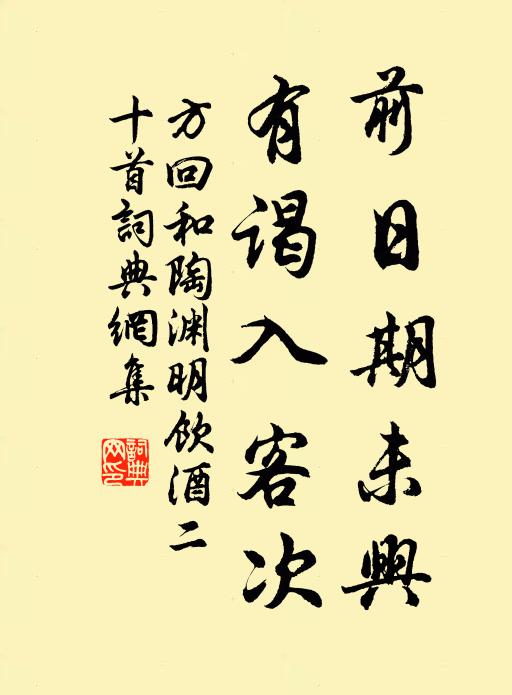 前日期未興
有謁入客次
方回和陶渊明饮酒二
十首詞典網集
詞典
网印